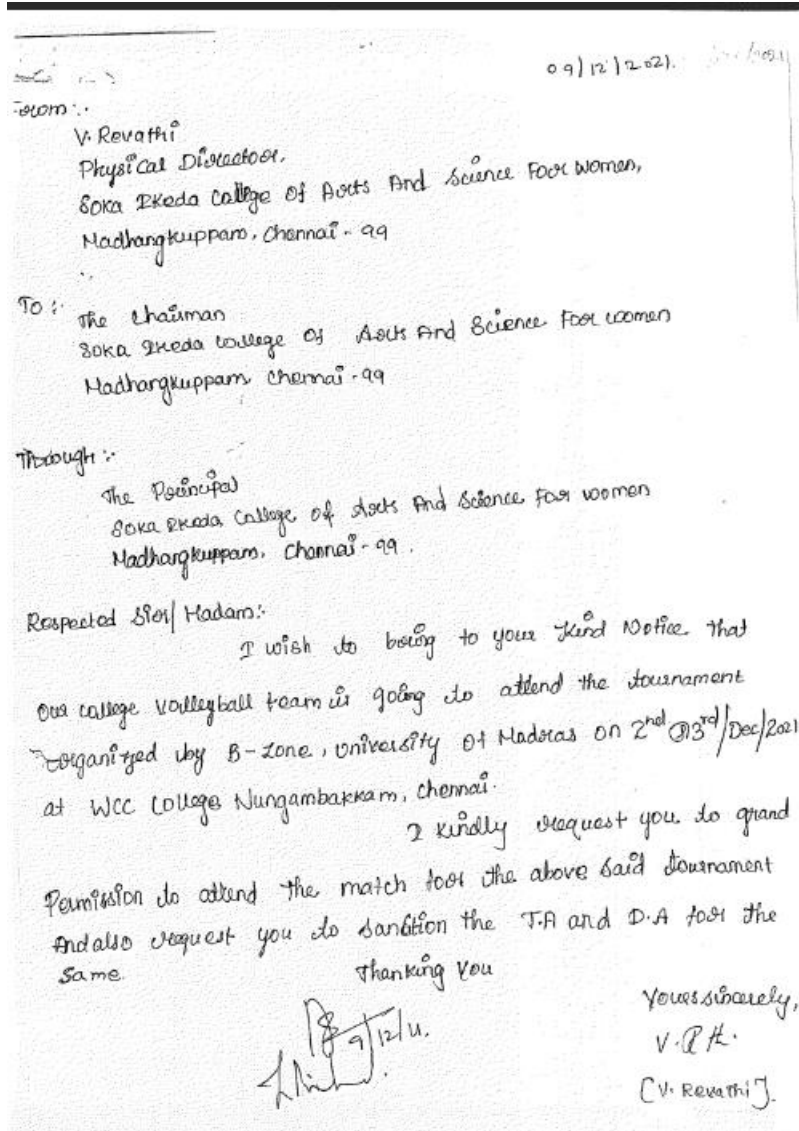 09/12/2021.
From:-
V. Revathi
Physical Director,
Soka Ikeda College Of Arts And Science For Women,
Madhangkuppam, Chennai - 99
To :-
The Chairman
Soka Ikeda College Of Arts And Science For women
Madhangkuppam, Chennai - 99
Through :-
The Principal
Soka Ikeda College of Arts And Science For women
Madhangkuppam, Chennai - 99.
Respected Sir/ Madam:-
I wish to bring to your Kind Notice that
Our college Volleyball team is going to attend the tournament
organized by B-Zone, University of Madras on 2nd 3rd/Dec/2021
at WCC College Nungambakkam, Chennai.
I kindly request you to grand
Permission to attend the match for the above said tournament
And also request you to sanction the T.A and D.A for the
Same.
Thanking You
Yours sincerely,
9/12/21.
[V. Revathi].